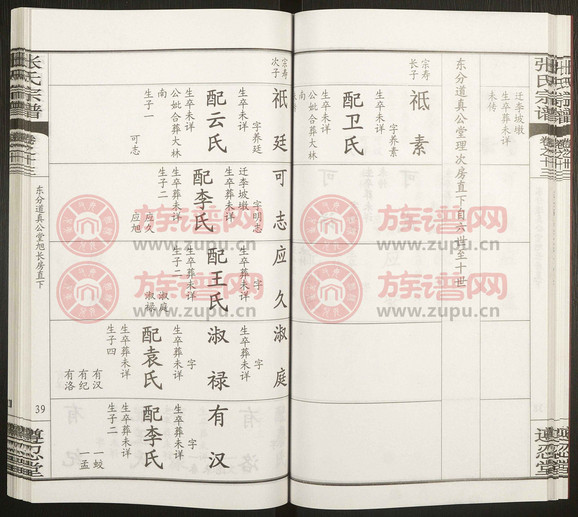 张氏宗谱
卷之十三
遵忍堂
迁李坡墩
未传
东分道真公堂理次房直下自六世至十世
宗寿
长子
祗素
字养素
生卒葬未详
配卫氏
生卒葬未详
公妣合葬大林
宗寿
次子
祗廷
字养廷
生卒葬未详
配云氏
生卒葬未详
公妣合葬大林
南
生子一
可志
可志
字明志
迁李坡墩
生卒葬未详
配李氏
生卒葬未详
生子二
应久
应旭
应久
字
生卒葬未详
配王氏
生卒葬未详
生子二
淑庭
淑禄
淑庭
字
生卒葬未详
淑禄
字
生卒葬未详
配袁氏
生卒葬未详
生子四
有汉
有纪
有洛
有汉
字
生卒葬未详
配李氏
生卒葬未详
生子二
一蛟
一孟
东分道真公堂旭长房直下
39
张氏宗谱
卷之十三
遵忍堂
族谱网
www.zupu.cn
族谱网
www.zupu.cn
族谱网
www.zupu.cn
族谱网
www.zupu.cn